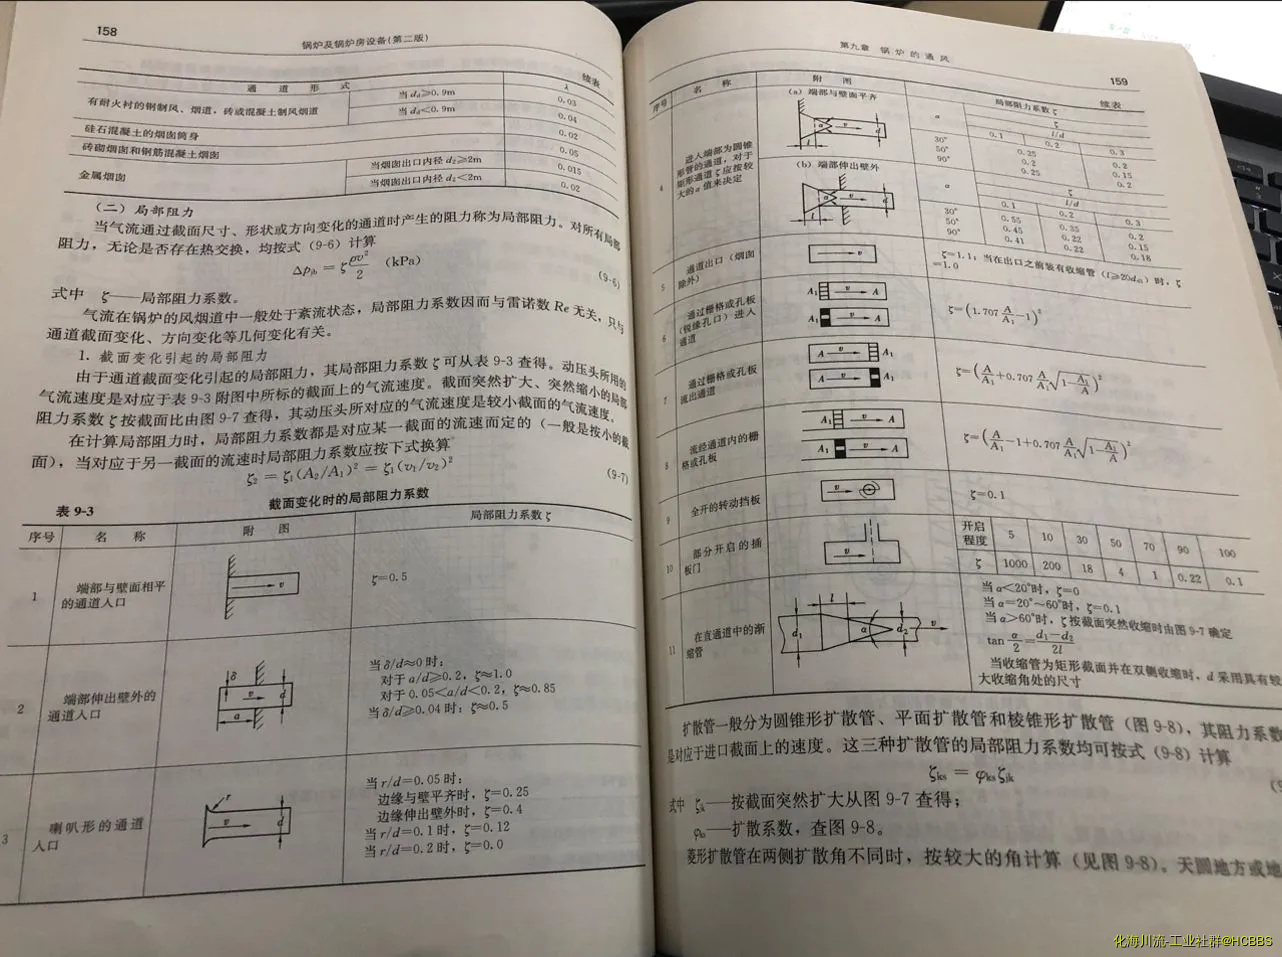 158
锅炉及锅炉房设备(第二版)
续表
通 道 形 式
λ
有耐火衬的钢制风、烟道,砖或混凝土制风烟道
当 dd≥0.9m
0.03
当 dd<0.9m
0.04
硅石混凝土的烟囱筒身
0.02
砖砌烟囱和钢筋混凝土烟囱
0.05
金属烟囱
当烟囱出口内径 d2≥2m
0.015
当烟囱出口内径 d2<2m
0.02
(二)局部阻力
当气流通过截面尺寸、形状或方向变化的通道时产生的阻力称为局部阻力。对所有局部
阻力,无论是否存在热交换,均按式 (9-6) 计算
Δpjb = ζ ρv²/2 (kPa)
(9-6)
式中 ζ——局部阻力系数。
气流在锅炉的风烟道中一般处于紊流状态,局部阻力系数因而与雷诺数 Re 无关,只与
通道截面变化、方向变化等几何变化有关。
1. 截面变化引起的局部阻力
由于通道截面变化引起的局部阻力,其局部阻力系数 ζ 可从表 9-3 查得。动压头所用的
气流速度是对应于表 9-3 附图中所标的截面上的气流速度。截面突然扩大、突然缩小的局部
阻力系数 ζ 按截面比由图 9-7 查得,其动压头所对应的气流速度是较小截面的气流速度。
在计算局部阻力时,局部阻力系数都是对应某一截面的流速而定的(一般是按小的截
面),当对应于另一截面的流速时局部阻力系数应按下式换算
ζ2 = ζ1(A2/A1)² = ζ1(v1/v2)²
(9-7)
表 9-3
截面变化时的局部阻力系数
序号
名 称
附 图
局部阻力系数 ζ
1
端部与壁面相平
的通道入口
v
ζ=0.5
2
端部伸出壁外的
通道入口
δ
v
d
a
当 δ/d≈0 时:
对于 a/d≥0.2,ζ≈1.0
对于 0.05<a/d<0.2,ζ≈0.85
当 δ/d≥0.04 时:ζ≈0.5
3
喇叭形的通道
入口
r
v
d
当 r/d=0.05 时:
边缘与壁平齐时,ζ=0.25
边缘伸出壁外时,ζ=0.4
当 r/d=0.1 时,ζ=0.12
当 r/d=0.2 时,ζ=0.0
第九章 锅炉的通风
159
续表
序号
名 称
附 图
局部阻力系数 ζ
4
进入端部为圆锥
形管的通道,对于
矩形通道 ζ 应按较
大的 α 值来决定
(a) 端部与壁面平齐
α
v
d
l
α
ζ
l/d
0.1
0.2
0.3
30°
0.25
0.2
50°
0.2
0.15
90°
0.25
0.2
(b) 端部伸出壁外
v
d
l
α
ζ
l/d
0.1
0.2
0.3
30°
0.55
0.35
0.2
50°
0.45
0.22
0.15
90°
0.41
0.22
0.18
5
通道出口(烟囱
除外)
v
ζ=1.1;当在出口之前装有收缩管(l≥20ddl)时,ζ
=1.0
6
通过栅格或孔板
(锐缘孔口)进入
通道
A1
v
A
A1
v
A
ζ=(1.707 A/A1 -1)²
7
通过栅格或孔板
流出通道
A
v
A1
A
v
A1
ζ=(A/A1 +0.707 A/A1 √(1-A1/A))²
8
流经通道内的栅
格或孔板
A1
v
A
A1
v
A
ζ=(A/A1 -1+0.707 A/A1 √(1-A1/A))²
9
全开的转动挡板
v
ζ=0.1
10
部分开启的插
板门
v
开启
程度
5
10
30
50
70
90
100
ζ
1000
200
18
4
1
0.22
0.1
11
在直通道中的渐
缩管
l
d1
α
d2
v
当 α<20°时,ζ=0
当 α=20°~60°时,ζ=0.1
当 α>60°时,ζ 按截面突然收缩时由图 9-7 确定
tan α/2 = (d1-d2)/2l
当收缩管为矩形截面并在双侧收缩时,d 采用具有较
大收缩角处的尺寸
扩散管一般分为圆锥形扩散管、平面扩散管和棱锥形扩散管(图 9-8),其阻力系数
是对应于进口截面上的速度。这三种扩散管的局部阻力系数均可按式 (9-8) 计算
ζks = φks ζjk
式中 ζjk——按截面突然扩大从图 9-7 查得;
φks——扩散系数,查图 9-8。
菱形扩散管在两侧扩散角不同时,按较大的角计算(见图 9-8)。天圆地方或地
化海川流-工业社群@HCBBS